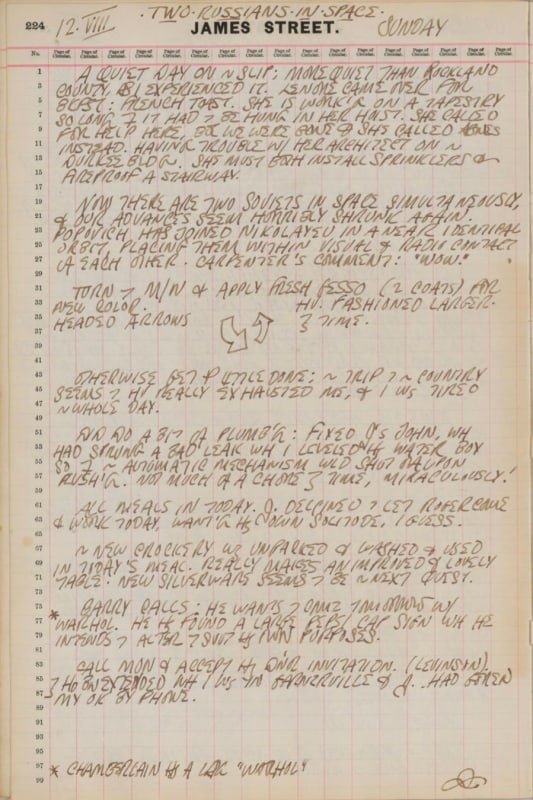 · TWO · RUSSIANS · IN · SPACE ·
224 12 · VIII JAMES STREET. SUNDAY
No. Page of Circular. Page of Circular. Page of Circular. Page of Circular. Page of Circular. Page of Circular. Page of Circular. Page of Circular. Page of Circular. Page of Circular. Page of Circular. Page of Circular. Page of Circular. Page of Circular. Page of Circular. Page of Circular.
A QUIET DAY ON ~ SLIP; MORE QUIET THAN ROCKLAND
COUNTY, AS I EXPERIENCED IT. LENORE CAME OVER FOR
BKFST; FRENCH TOAST. SHE IS WORK'G ON A TAPESTRY
SO LONG IT HAD TO BE HUNG IN HER HOIST. SHE CALLED
FOR HELP HERE, BUT WE WERE GONE & SHE CALLED
INSTEAD. HAVING TROUBLE W/ HER ARCHITECT ON ~
DURKEE BLDG. SHE MUST BOTH INSTALL SPRINKLERS &
FIREPROOF A STAIRWAY.
NOW THERE ARE TWO SOVIETS IN SPACE SIMULTANEOUSLY,
& OUR ADVANCES SEEM HORRIBLY SHRUNK AGAIN.
POPOVICH HAS JOINED NIKOLAYEV IN A NEAR IDENTICAL
ORBIT, PLACING THEM WITHIN VISUAL & RADIO CONTACT
OF EACH OTHER. CARPENTER'S COMMENT: "WOW."
TURN M/N & APPLY FRESH GESSO (2 COATS) FOR
NEW COLOR. HV. FASHIONED LARGER-
HEADED ARROWS TIME.
OTHERWISE GET LITTLE DONE; ~ TRIP ~ COUNTRY
SEEMS HV REALLY EXHAUSTED ME, & I WS TIRED
~ WHOLE DAY.
DID DO A BIT OF PLUMB'G: FIXED J'S JOHN, WH
HAD SPRUNG A BAD LEAK WH I LEVELED WATER BOY
SO ~ AUTOMATIC MECHANISM WLD SHUT OFF UPON
NOT MUCH OF A CHORE TIME, MIRACULOUSLY!
ALL MEALS IN TODAY. J. DECLINED LET ROGER COME
& WORK TODAY, WANT'G HS OWN SOLITUDE, I GUESS.
~ NEW CROCKERY WS UNPACKED & WASHED & USED
IN TODAY'S MEAL. REALLY MAKES AN IMPROVED & LOVELY
TABLE. NEW SILVERWARE SEEMS BE ~ NEXT QUEST.
* BARRY CALLS: HE WANTS COME TOMORROW W/
WARHOL. HE HS FOUND A LARGE PEPSI CAP SIGN WH HE
INTENDS ALTER SUIT HS OWN PURPOSES.
CALL MON & ACCEPT HS DINR INVITATION. (LEVINSON).
HD BN EXTENDED WH I WS IN GARNERVILLE & J. HAD GIVEN
MY OK BY PHONE.
* CHAMBERLAIN "WARHOL"
1
3
5
7
9
11
13
15
17
19
21
23
25
27
29
31
33
35
37
39
41
43
45
47
49
51
53
55
57
59
61
63
65
67
69
71
73
75
77
79
81
83
85
87
89
91
93
95
97
99